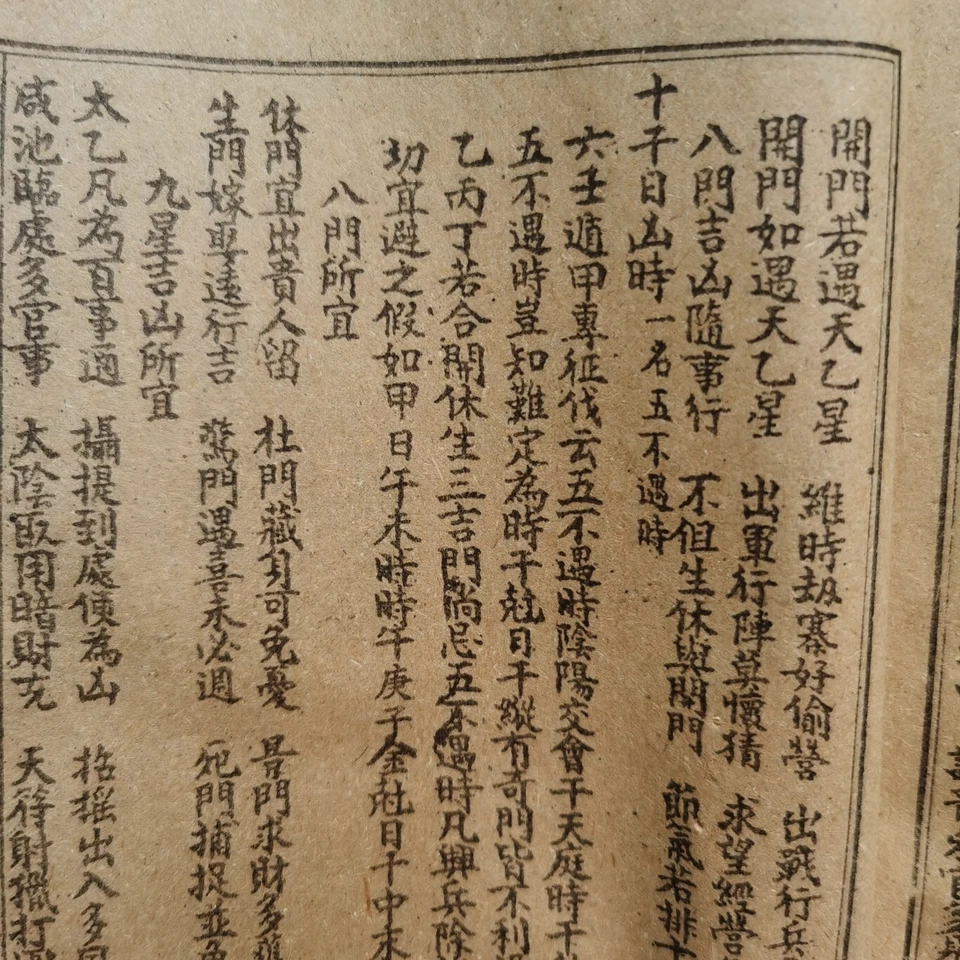 開門若遇天乙星　維時劫寨好偷營　出戰行兵
開門如遇天乙星　出軍行陣莫懷猜　求望經營
八門吉凶隨事行　不但生休與開門　節氣若排
十干日凶時一名五不遇時
六壬遁甲專征伐云五不遇時陰陽交會干天庭時干
五不遇時豈知難定為時干尅日干縱有奇門皆不利
乙丙丁若合開休生三吉門尚忌五不遇時凡興兵除
切宜避之假如甲日午未時時午庚子金尅日干中未
八門所宜
休門宜出貴人留　杜門藏身可免憂　景門求財多
生門嫁娶遠行吉　驚門遇喜未必週　死門捕捉並
九星吉凶所宜
太乙凡為百事通　攝提到處便為凶　招搖出入多
咸池臨處多官事　太陰取用暗財充　天符射獵打